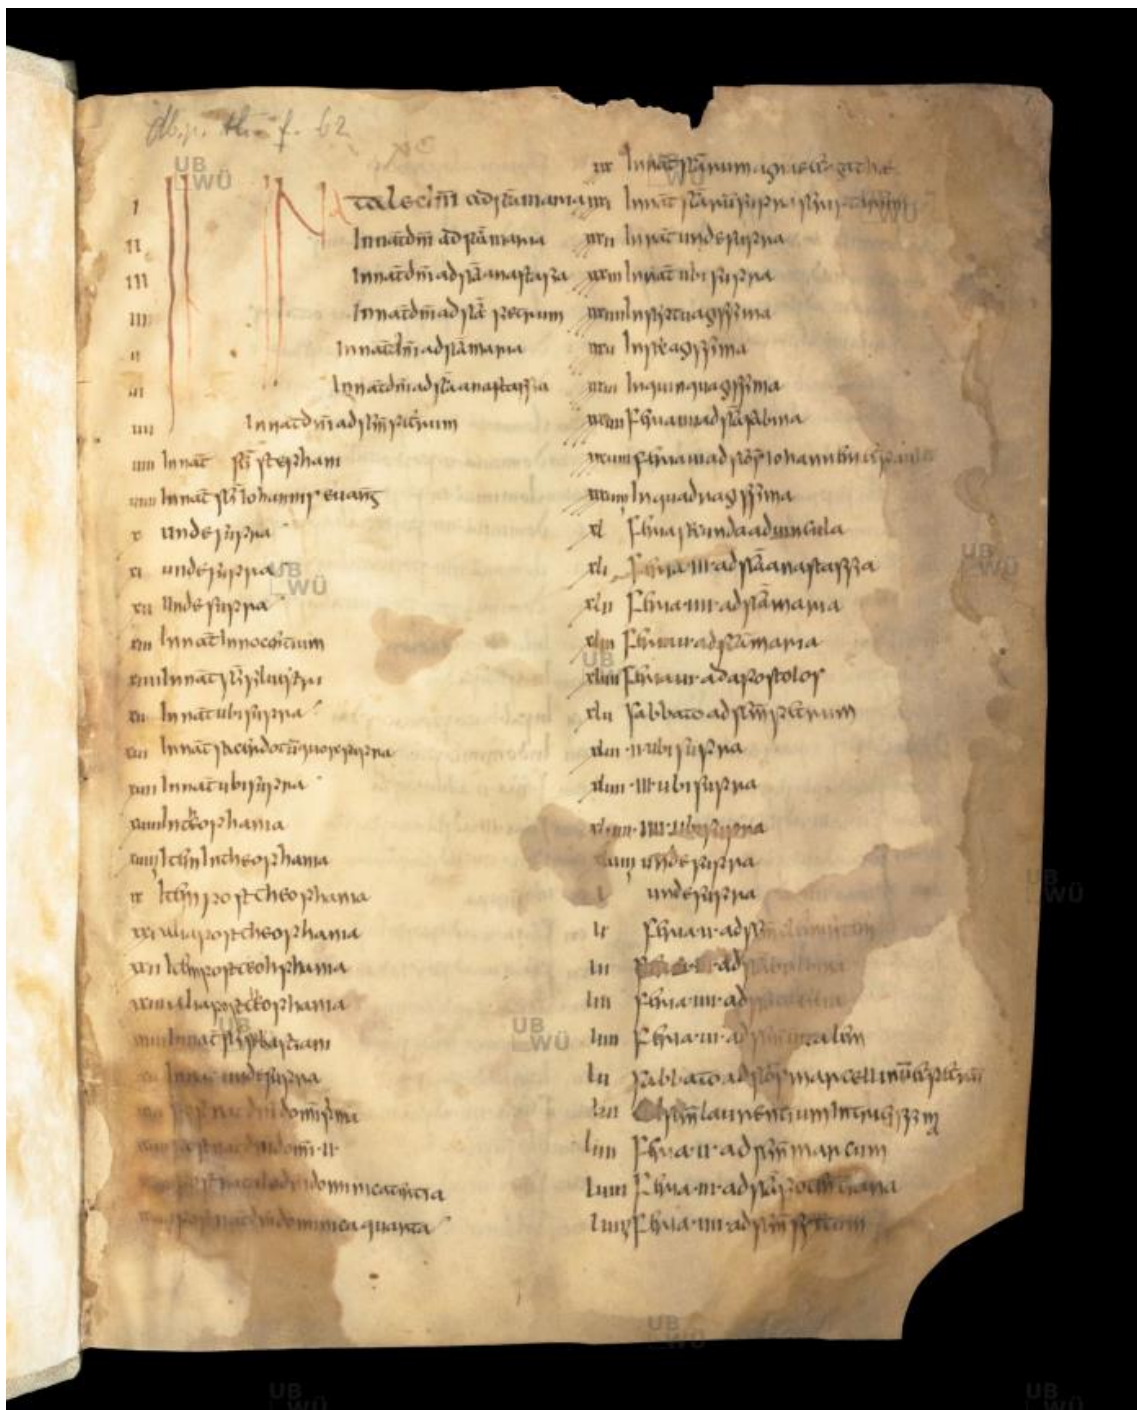 M. p. th. f. 62
I IN Natale dn̄i ad scā maria
II In nat dn̄i ad scā maria
III In nat dn̄i ad scā anastasia
IIII In nat dn̄i ad scm petrum
u In nat dn̄i ad scā maria
ui In nat dn̄i ad scā anastassia
uii In nat dn̄i ad scm̄ petrum
uiii In nat sci stephani
uiiii In nat sci iohannis euang
x unde supra
xi unde supra
xii unde supra
xiii In nat Innocentium
xiiii In nat sci siluestri
xu In nat ubi supra
xui In nat sacerdotum quorum supra
xuii In nat ubi supra
xuiii In theophania
xuiiii item In theophania
xx item post theophania
xxi alia post theophania
xxii item post teohphania
xxiii alia post theophania
In nat sci sebastiani
In nat unde supra
post nat dn̄i dom̄ prima
post nat dn̄i dom̄ ·II·
post natale dn̄i dominica tertia
post nat dn̄i dominica quarta
xxx In nat scārum agnae et agathae
In nat scārū supra
xxxii In nat unde supra
xxxiii In nat ubi supra
xxxiiii In septuagissima
xxxu In sexagissima
xxxui In quinquagissima
xxxuii Feria ·IIII· ad scā sabina
xxxuiii feria ui ad scos iohannem et paulum
xxxuiiii In quadragissima
xl Feria secunda ad uincula
xli Feria ·III· ad scā anastassia
xlii Feria ·IIII· ad scā maria
xliii Feria u ad scā maria
xliiii Feria ui· ad apostolos
xlu Sabbato ad scm̄ petrum
xlui ·II· ubi supra
xluii ·III· ubi supra
xluiii ·IIII· ubi supra
xluiiii unde supra
l unde supra
li Feria ·II· ad scm̄ clementem
lii Feria ad balbina
liii Feria ·IIII· ad
liiii Feria ·ui· ad uitalem
lu Sabbato ad scos marcellinū et petrum
lui Ad scm̄ laurentium
luii Feria ·II· ad scm̄ marcum
luiii Feria ·III· ad scā potentiana
luiiii Feria ·IIII· ad scm̄ syxtum